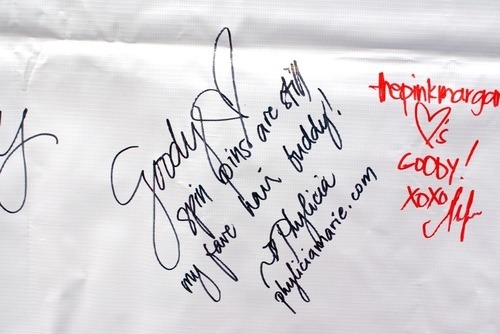 Goody
spin pins are still
my fave hair buddy!
Phylicia
phyliciamarie.com
thepinkmargar
♡s
GOODY!
XOXO